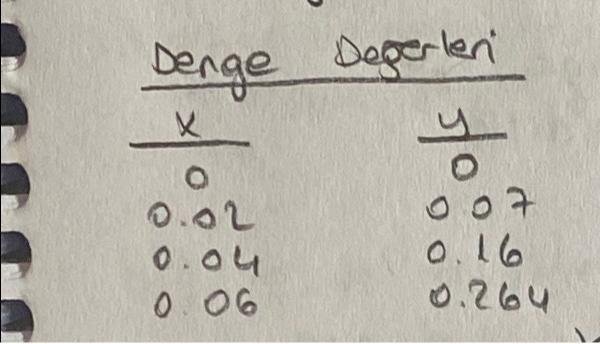 Denge Değerleri
x y
0 0
0.02 0 07
0.04 0.16
0.06 0.264